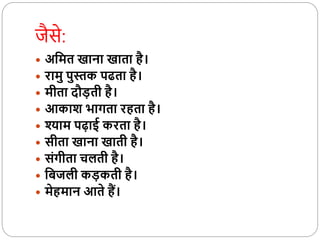 जैसे:
• अमित खाना खाता है।
• रामु पुस्तक पढता है।
• मीता दौड़ती है।
• आकाश भागता रहता है।
• श्याम पढ़ाई करता है।
• सीता खाना खाती है।
• संगीता चलती है।
• बिजली कड़कती है।
• मेहमान आते हैं।